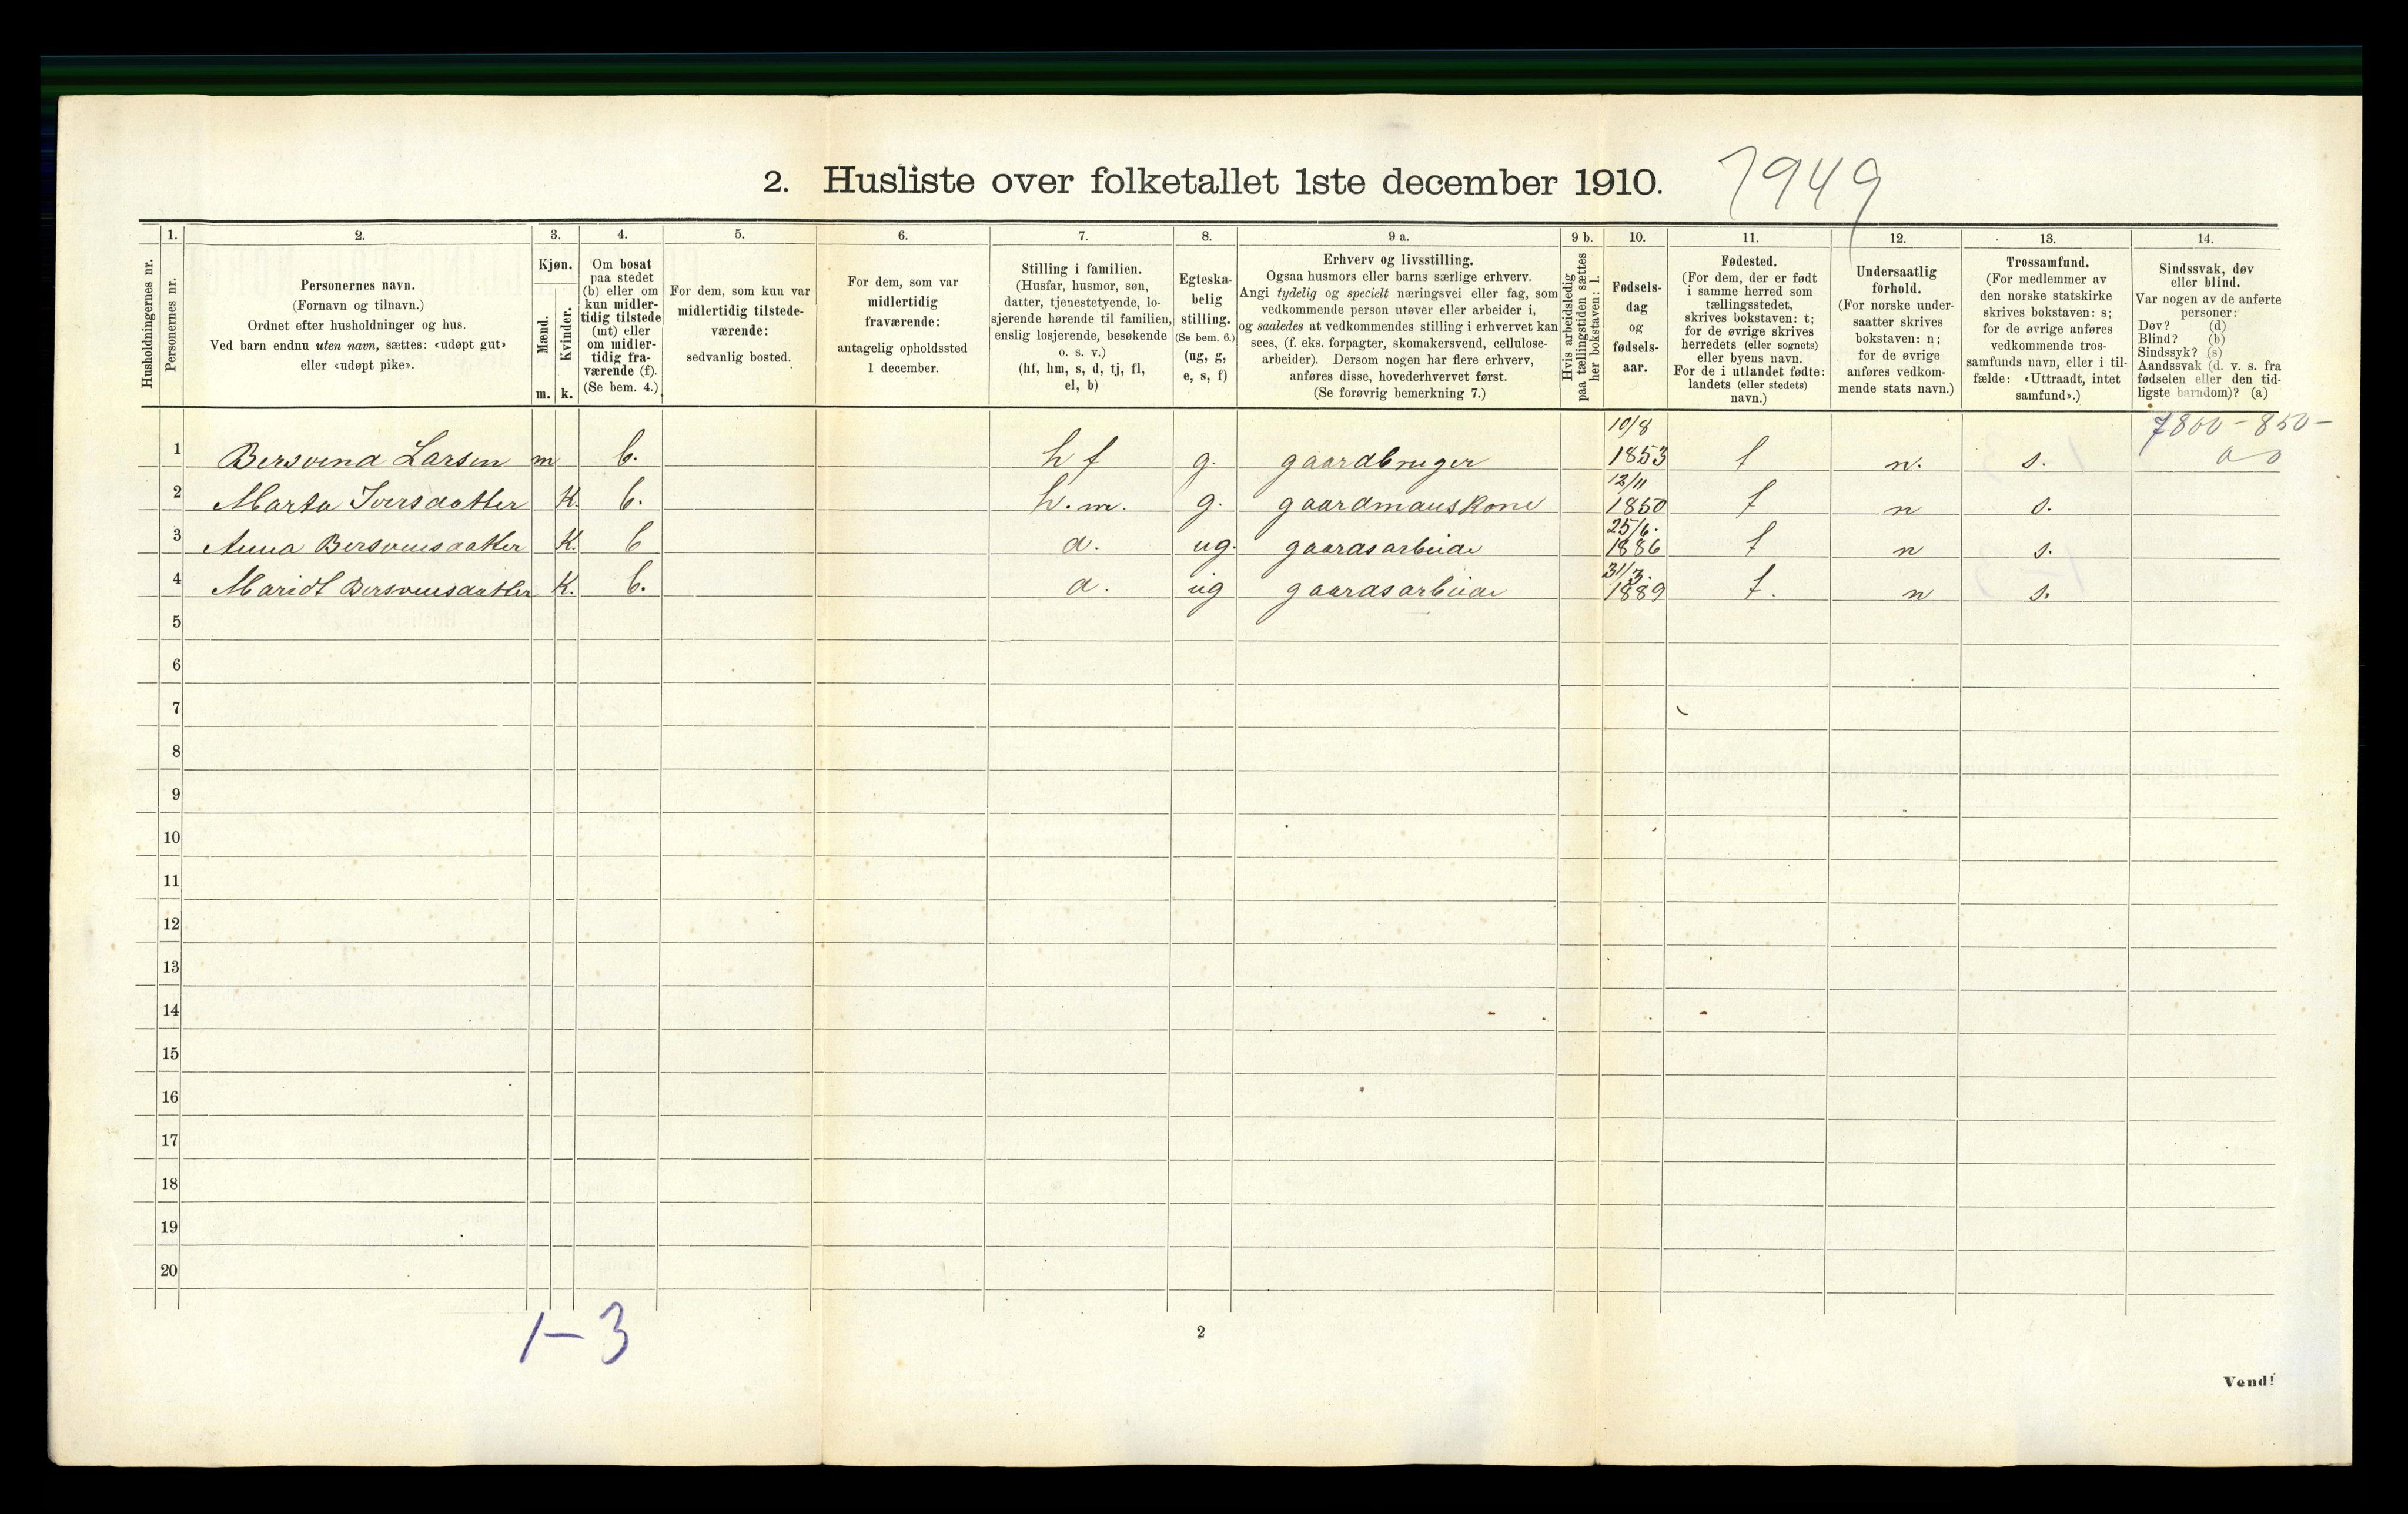 2. Husliste over folketallet 1ste december 1910. 7949
1. 2. 3. 4. 5. 6. 7. 8. 9 a. 9 b. 10. 11. 12. 13. 14.
Husholdningernes nr.
Personernes nr.
Personernes navn.
(Fornavn og tilnavn.)
Ordnet efter husholdninger og hus.
Ved barn endnu uten navn, sættes: «udøpt gut»
eller «udøpt pike».
Kjøn.
Mænd.
Kvinder.
m. k.
Om bosat
paa stedet
(b) eller om
kun midler-
tidig tilstede
(mt) eller
om midler-
tidig fra-
værende (f).
(Se bem. 4.)
For dem, som kun var
midlertidig tilstede-
værende:
sedvanlig bosted.
For dem, som var
midlertidig
fraværende:
antagelig opholdssted
1 december.
Stilling i familien.
(Husfar, husmor, søn,
datter, tjenestetyende, lo-
sjerende hørende til familien,
enslig losjerende, besøkende
o. s. v.)
(hf, hm, s, d, tj, fl,
el, b)
Egteska-
belig
stilling.
(Se bem. 6.)
(ug, g,
e, s, f)
Erhverv og livsstilling.
Ogsaa husmors eller barns særlige erhverv.
Angi tydelig og specielt næringsvei eller fag, som
vedkommende person utøver eller arbeider i,
og saaledes at vedkommendes stilling i erhvervet kan
sees, (f. eks. forpagter, skomakersvend, cellulose-
arbeider). Dersom nogen har flere erhverv,
anføres disse, hovederhvervet først.
(Se forøvrig bemerkning 7.)
Hvis arbeidsledig
paa tællingstiden sættes
her bokstaven: l.
Fødsels-
dag
og
fødsels-
aar.
Fødested.
(For dem, der er født
i samme herred som
tællingsstedet,
skrives bokstaven: t;
for de øvrige skrives
herredets (eller sognets)
eller byens navn.
For de i utlandet fødte:
landets (eller stedets)
navn.)
Undersaatlig
forhold.
(For norske under-
saatter skrives
bokstaven: n;
for de øvrige
anføres vedkom-
mende stats navn.)
Trossamfund.
(For medlemmer av
den norske statskirke
skrives bokstaven: s;
for de øvrige anføres
vedkommende tros-
samfunds navn, eller i til-
fælde: «Uttraadt, intet
samfund».)
Sindssvak, døv
eller blind.
Var nogen av de anførte
personer:
Døv? (d)
Blind? (b)
Sindssyk? (s)
Aandssvak (d. v. s. fra
fødselen eller den tid-
ligste barndom)? (a)
7800 - 850 -
1 Bersvend Larsen m b. h f g. gaardbruger 10/8 1853 t n. s.
2 Marta Iversdatter K. b. h. m. g. gaardmanskone 12/11 1850 t n s.
3 Anna Bersvensdatter K. b d. ug. gaardsarbeide 25/6. 1886 t n s.
4 Maridt Bersvensdatter K. b. d. ug gaardsarbeide 31/3. 1889 t. n s.
5
6
7
8
9
10
11
12
13
14
15
16
17
18
19
20
1 - 3
2
Vend!